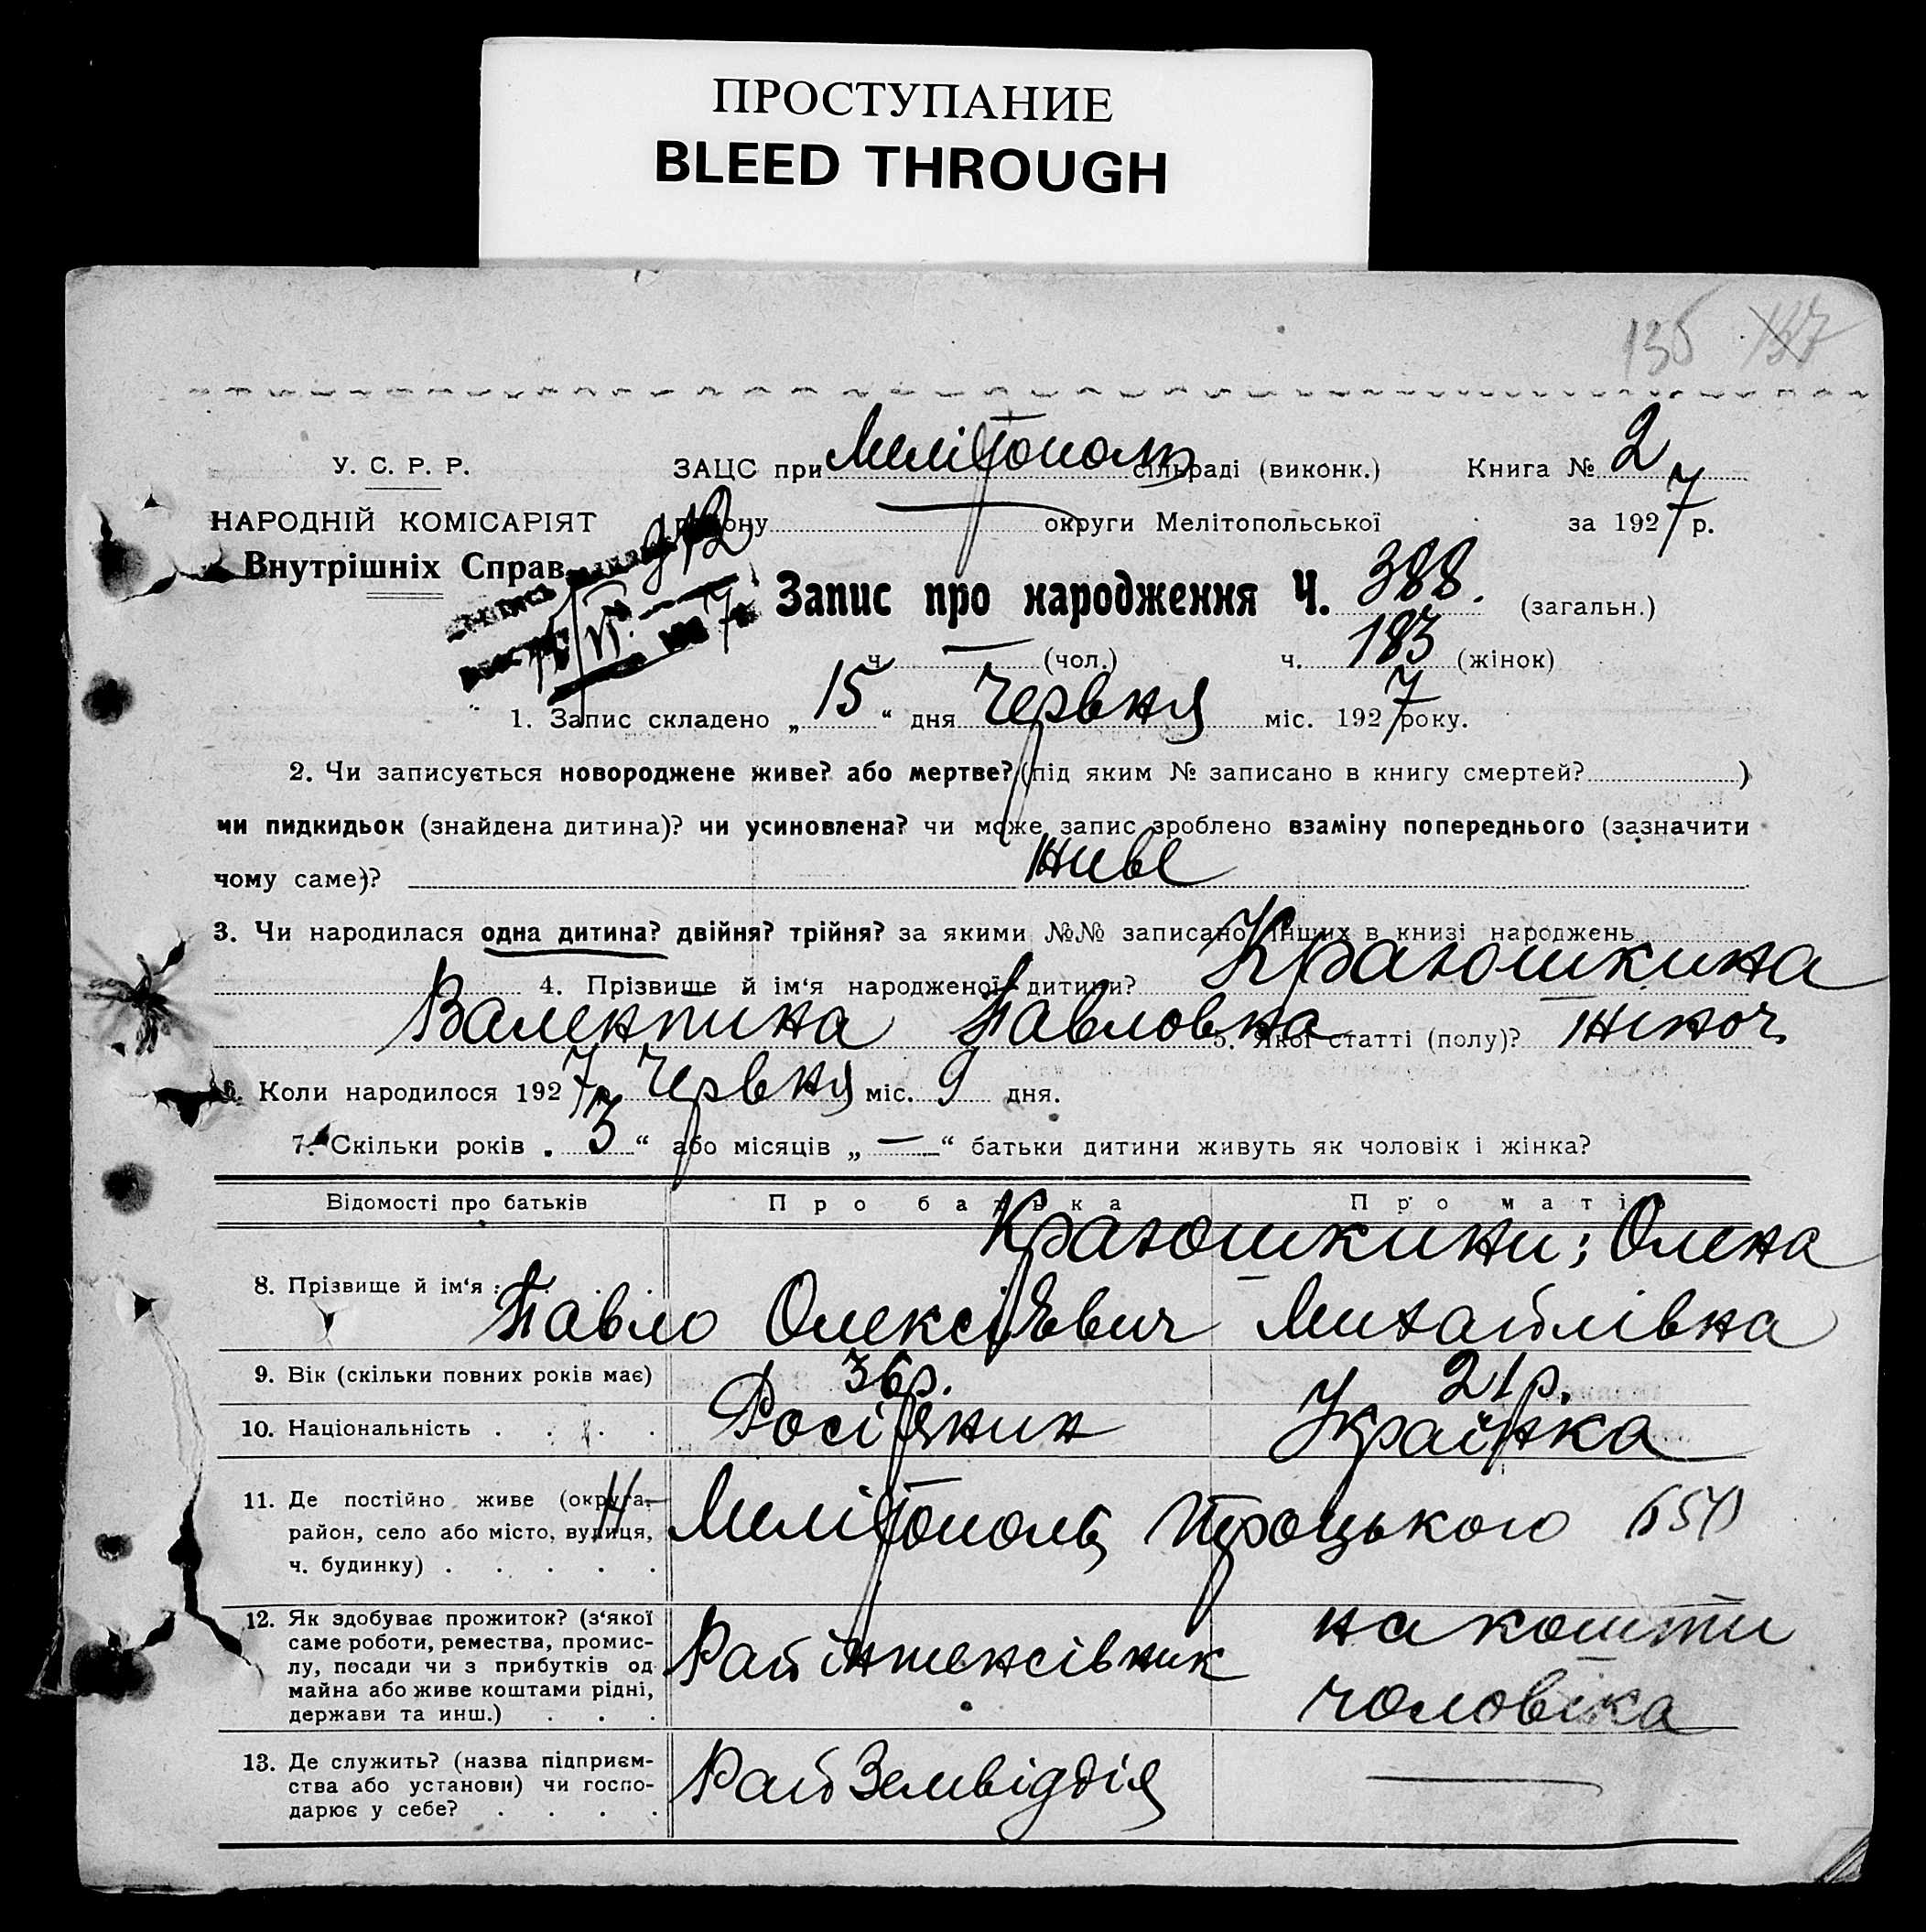 ПРОСТУПАНИЕ
BLEED THROUGH
135 137
У. С. Р. Р. ЗАЦС при Мелітополь сільраді (виконк.) Книга № 2
НАРОДНІЙ КОМІСАРІЯТ району — округи Мелітопольської за 1927 р.
Внутрішніх Справ
912
Запис про народження Ч. 388. (загальн.)
ч. — (чол.) ч. 183 (жінок)
1. Запис складено „ 15 “ дня Червня міс. 1927 року.
2. Чи записується новороджене живе? або мертве? (під яким № записано в книгу смертей? )
чи пидкидьок (знайдена дитина)? чи усиновлена? чи може запис зроблено взаміну попереднього (зазначити
чому саме)? живе
3. Чи народилася одна дитина? двійня? трійня? за якими №№ записано інших в книзі народжень
4. Прізвище й ім‘я народженої дитини? Кратошкина
Валентина Павловна 5. Якої статті (полу)? жіноч.
6. Коли народилося 1927 р. Червня міс. 9 дня.
7. Скільки років „ 3 “ або місяців „ — “ батьки дитини живуть як чоловік і жінка?
Відомості про батьків Про батька Про матір
Кратошкини; Олена
8. Прізвище й ім‘я : Павло Олексієвич Михайлівна
9. Вік (скільки повних років має) 36р. 21р.
10. Національність Росіянин Українка
11. Де постійно живе (округа,
район, село або місто, вулиця, Мелітополь, Троцького
ч. будинку)
12. Як здобуває прожиток? (з‘якої на кошти
саме роботи, ремества, промис-
лу, посади чи з прибутків од Рай
майна або живе коштами рідні, чоловіка
держави та инш.)
13. Де служить? (назва підприєм-
ства або установи) чи госпо- РайЗемвідділ —
дарює у себе?